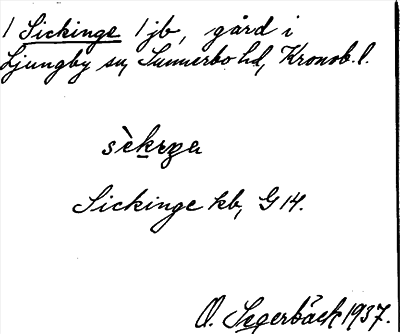 1 Sickinge 1 jb, gård i
Ljungby sn, Sunnerbo hd, Kronob. l.
Sickinge kb, G 14.
O. Segerbäck 1937.